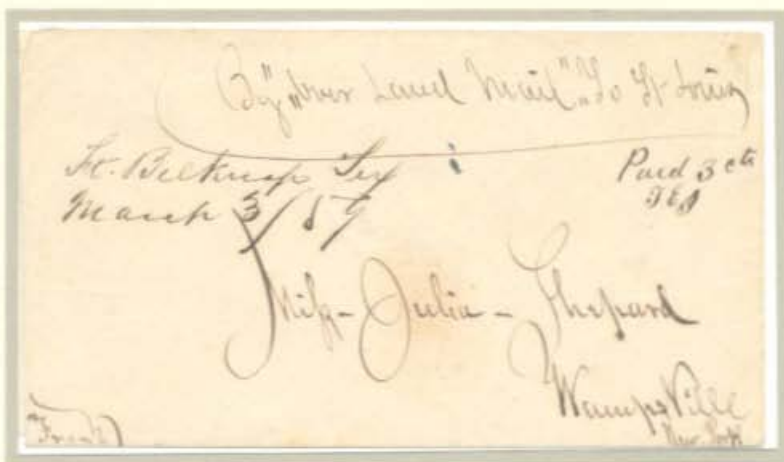 By "Over Land Mail" To St Louis
Ft. Belknap Tex
March 3/59
Paid 3 cts
Miss- Julia- Shepard
WampsVille
New York